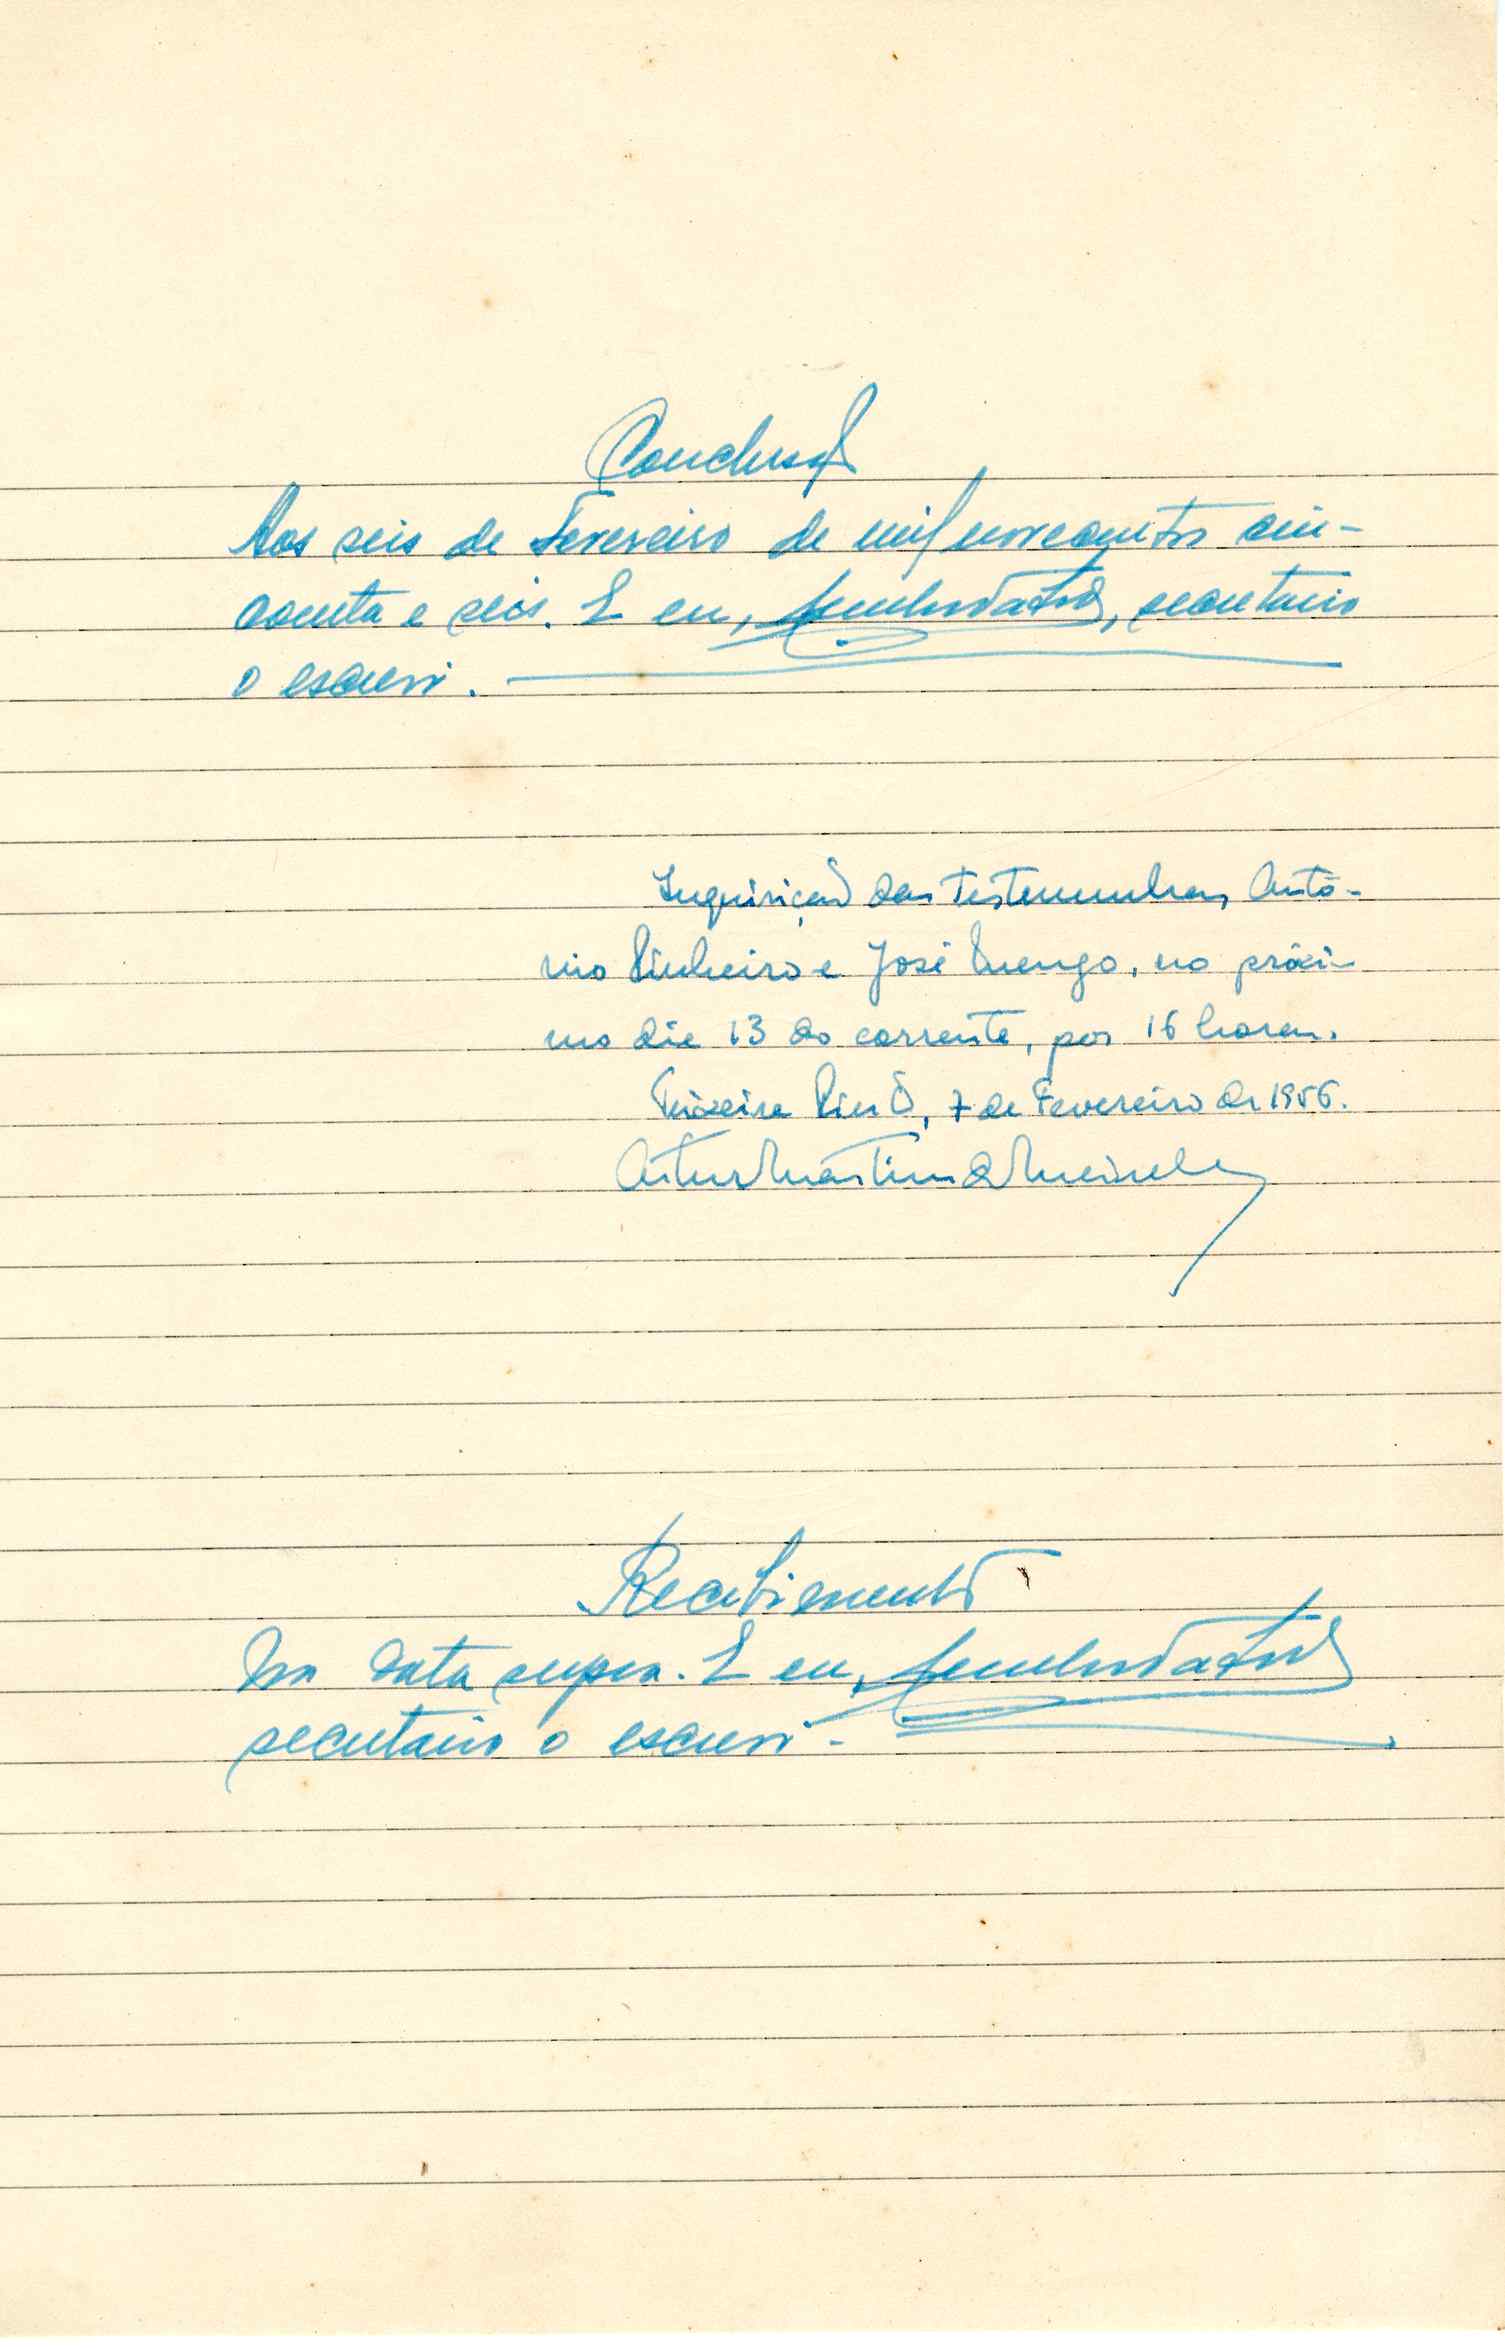 Conclusão
Aos seis de Fevereiro de mil novecentos cin-
coenta e seis. E eu, secretario
o escrevi.
Inquirição das testemunhas Antó-
nio Pinheiro e José, no próxi-
mo dia 13 do corrente, por 16 horas.
Teixeira Pinto, 7 de Fevereiro de 1956.
Artur Martins de Meireles
Recebimento
Na data supra. E eu,
secretario o escrevi.